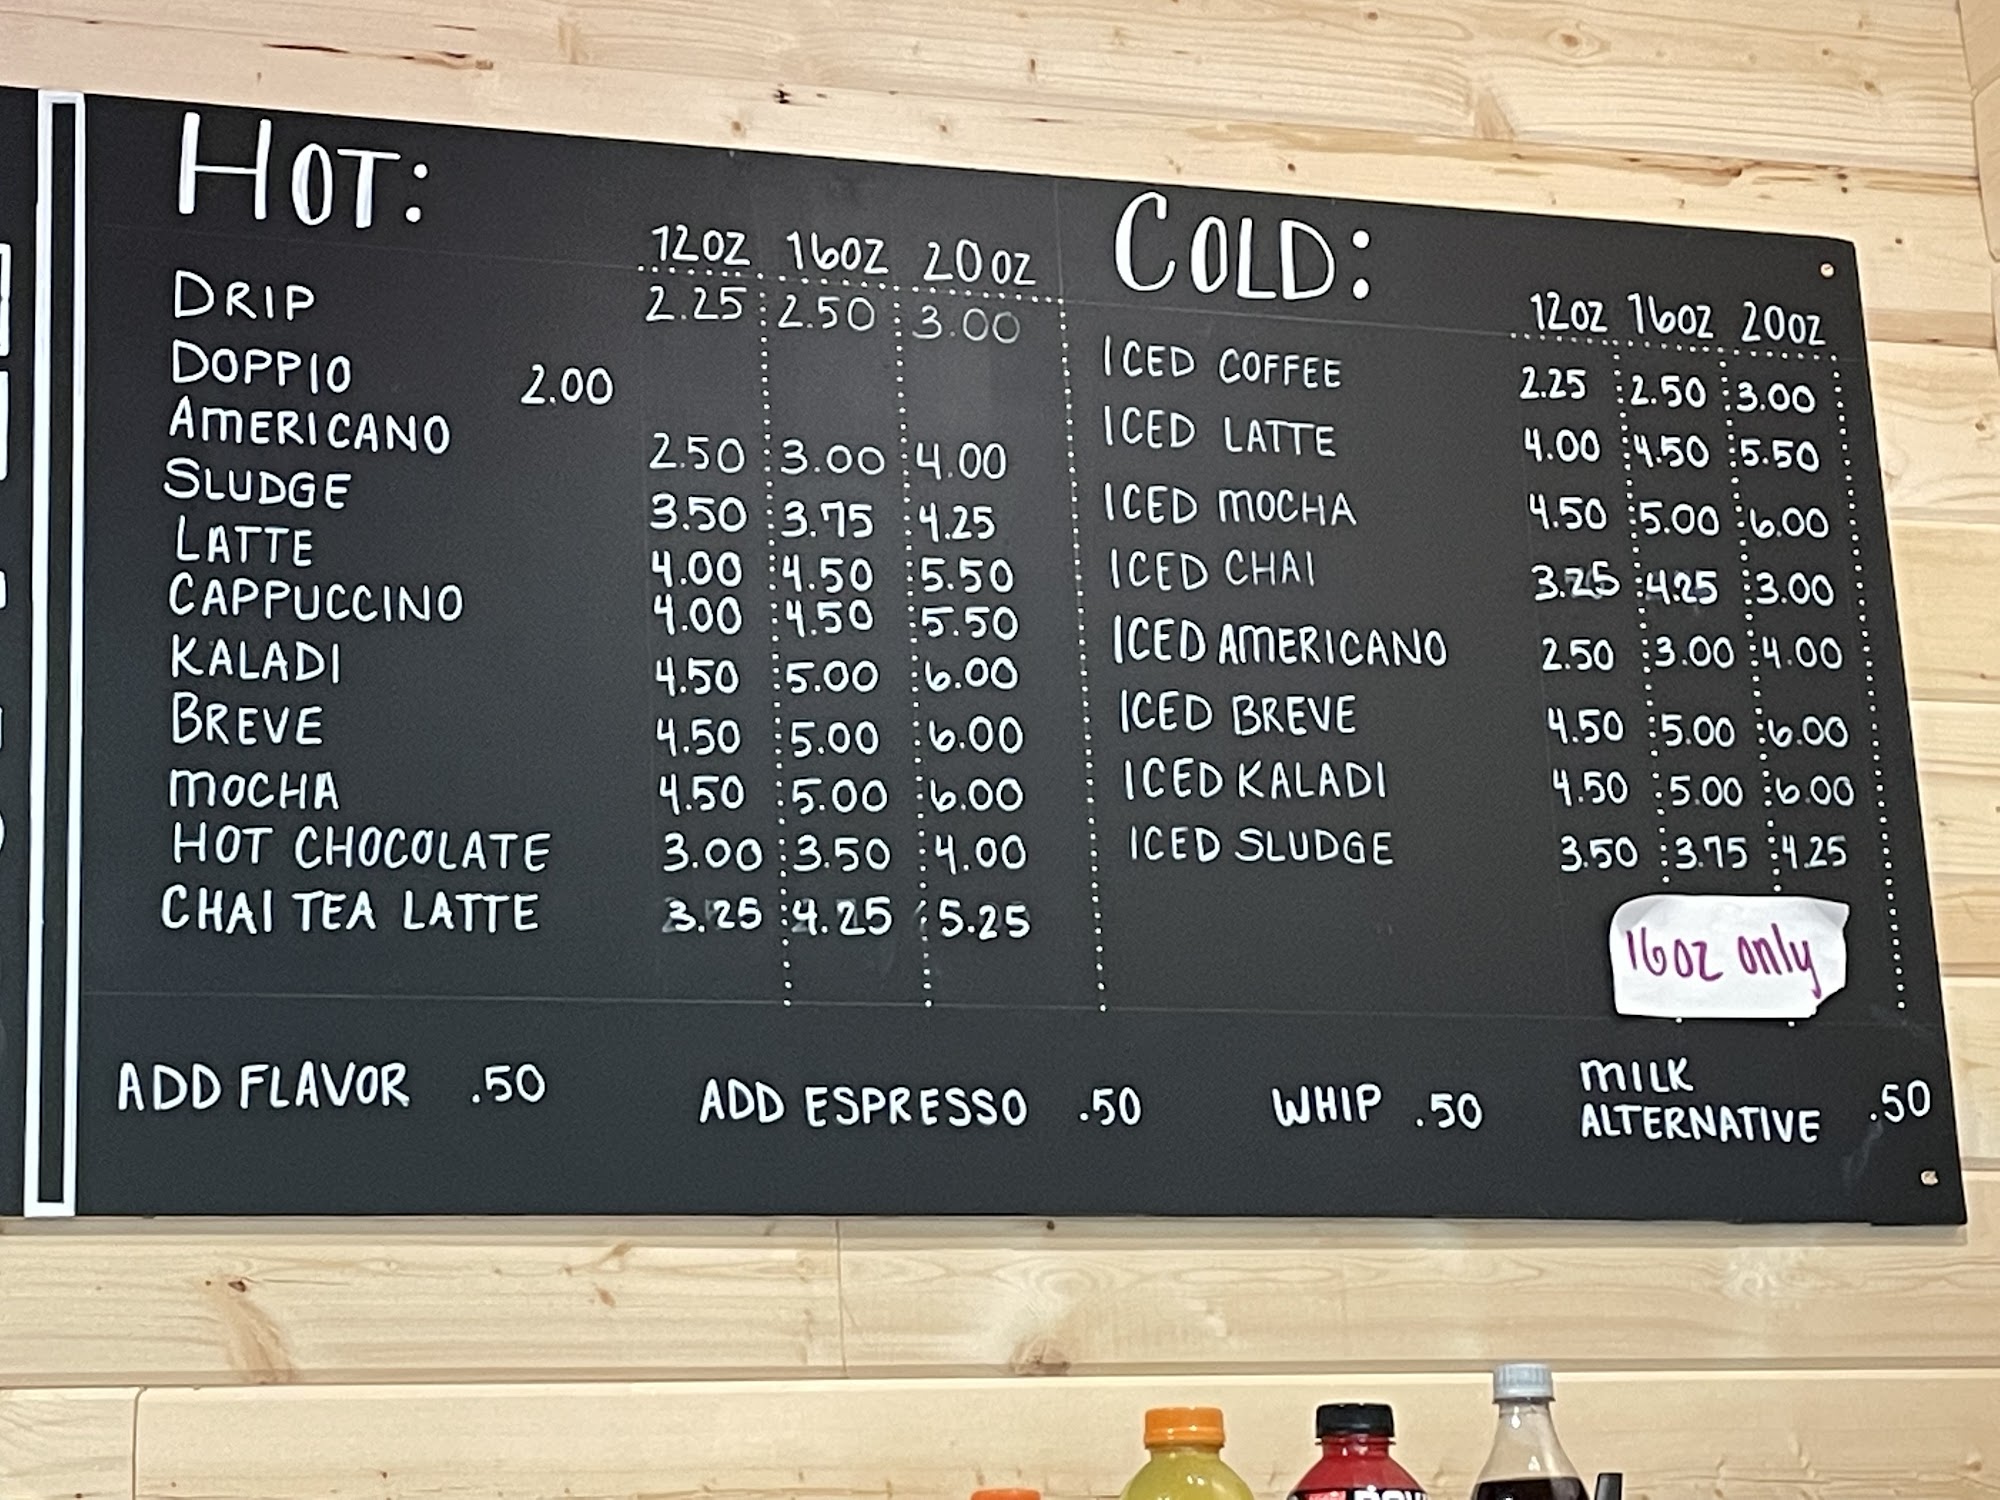 HOT:
12OZ 16OZ 20OZ
DRIP 2.25 2.50 3.00
DOPPIO 2.00
AMERICANO 2.50 3.00 4.00
SLUDGE 3.50 3.75 4.25
LATTE 4.00 4.50 5.50
CAPPUCCINO 4.00 4.50 5.50
KALADI 4.50 5.00 6.00
BREVE 4.50 5.00 6.00
MOCHA 4.50 5.00 6.00
HOT CHOCOLATE 3.00 3.50 4.00
CHAI TEA LATTE 3.25 4.25 5.25
COLD:
12OZ 16OZ 20OZ
ICED COFFEE 2.25 2.50 3.00
ICED LATTE 4.00 4.50 5.50
ICED MOCHA 4.50 5.00 6.00
ICED CHAI 3.25 4.25 3.00
ICED AMERICANO 2.50 3.00 4.00
ICED BREVE 4.50 5.00 6.00
ICED KALADI 4.50 5.00 6.00
ICED SLUDGE 3.50 3.75 4.25
16oz only
ADD FLAVOR .50
ADD ESPRESSO .50
WHIP .50
MILK
ALTERNATIVE .50